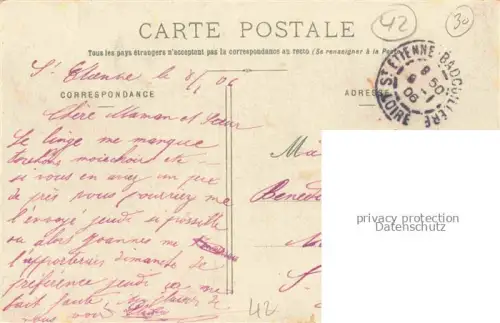 42
30
CARTE POSTALE
Tous les pays étrangers n'acceptent pas la correspondance au recto (Se renseigner à la Poste
St Etienne le 8/1 06
CORRESPONDANCE
ADRESSE
ST ETIENNE-BADOUILLÈRE
8 50
9 -1
06
LOIRE
Chère Maman et Sœur
Le linge me manque
torchons mouchoirs etc
si vous en avez un peu
de près vous pourriez me
l'envoyer jeudi si possible
ou alors Joannes me
l'apporterais dimanche de
préférence jeudi ça me
faut faute
vous voir
Bened
42
privacy protection
Datenschutz